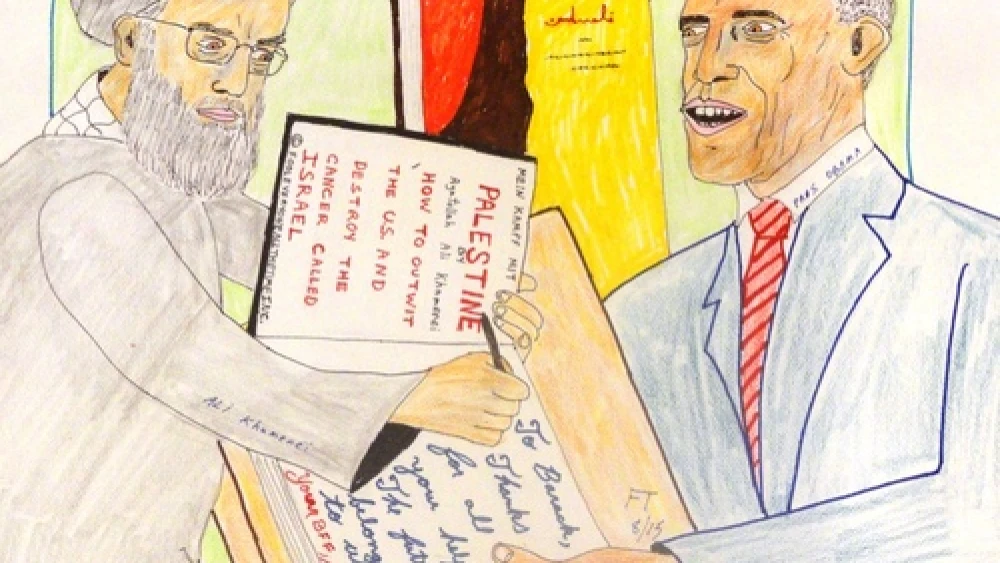 MEIN KAMPF MIT
PALESTINE
BY
Ayatolah Ali Khamenei
HOW TO OUTWIT
THE U.S. AND
DESTROY THE
CANCER CALLED
ISRAEL
PRES OBAMA
Ali Khamenei
To Barack,
Thanks
for all
your hel
The fut
belong
to u
Your BFF
8/15